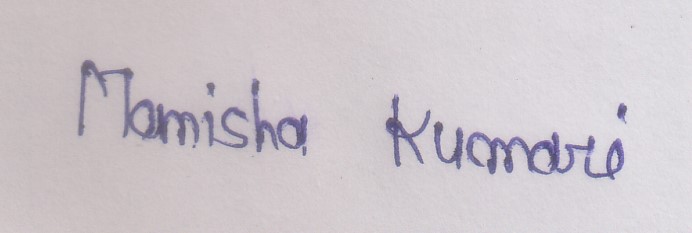 Mamisha Kumari